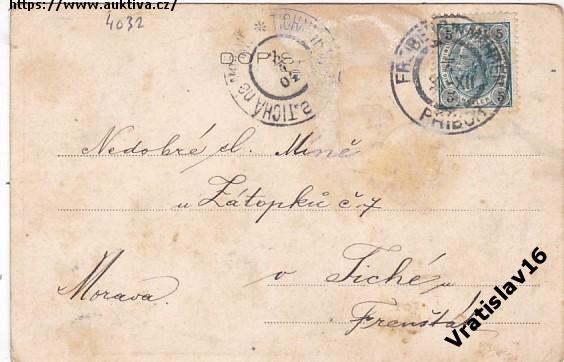 https://www.auktiva.cz/
4032
DOPIS
TICHÁ
B. TICHÁ
FREIBERG IN MÄHREN
PŘÍBOR
5 5
5 5
Nedobré sl. Mině
u Zátopků č. 7
v Tiché u
Morava. Frenštátu
Vratislav16